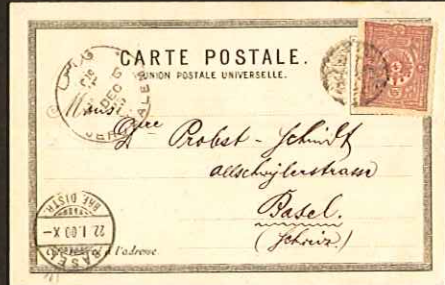 CARTE POSTALE.
UNION POSTALE UNIVERSELLE.
DEC
JER ALEM
Probst-Schmidt
Allschwylerstrasse
Basel.
(Schweiz)
BASEL
22.I.00.X
BRF. DISTR.
à l'adresse